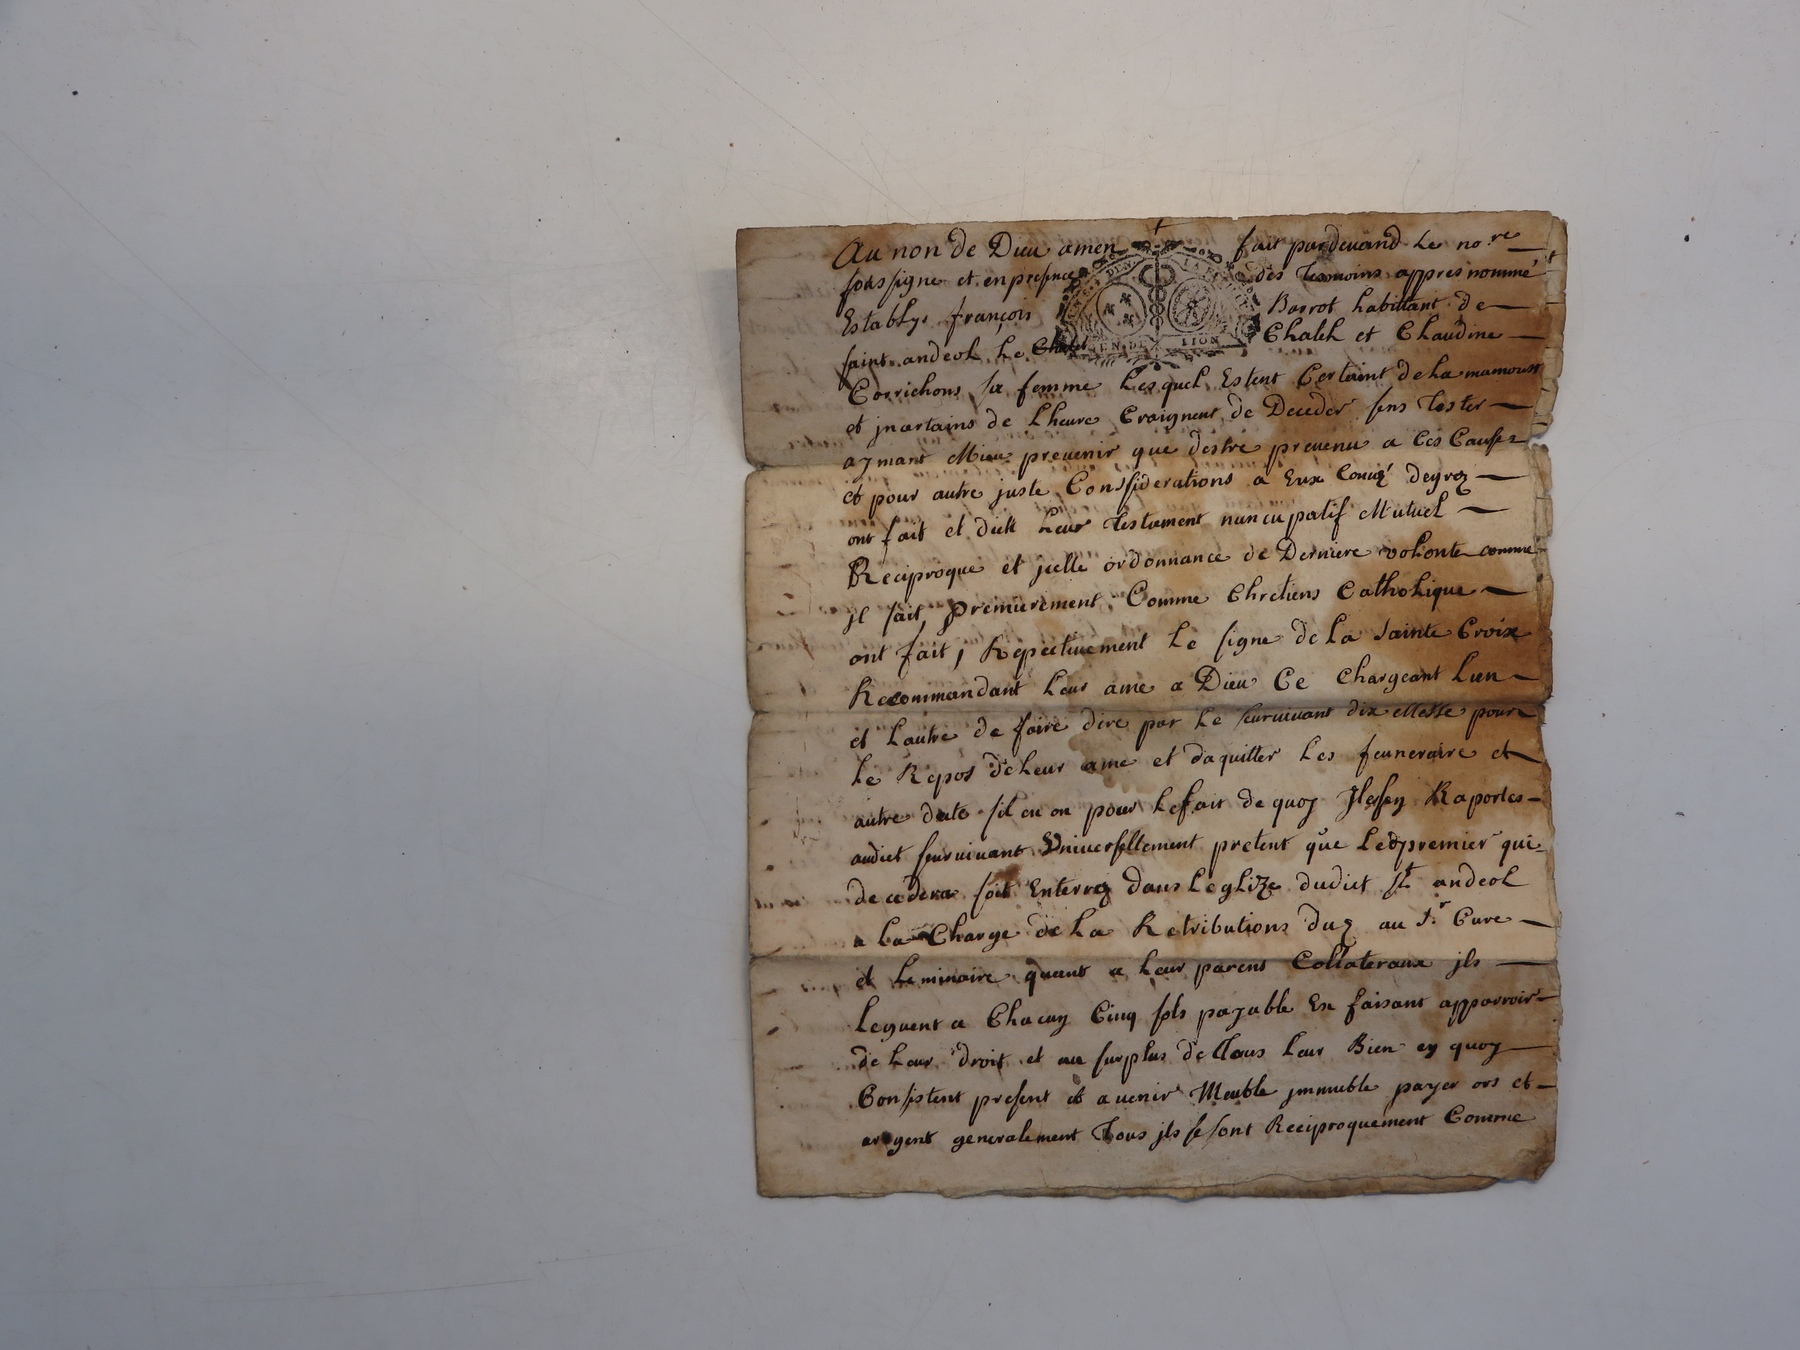 Au non de Dieu amen fait pardevand Le no.re
soussigne et en presence des Tesmoins appres nommé
Establys françois Barrot habittant de
saint andeol Le Chalet et Claudine
Corrichons sa femme Lesquel Estent Certaint de La mamoust
et jncertains de Lheure Craignent de Deceder sens Tester
aymant Mieux prevenir que destre prevenu a Ces Causes
et pour autre juste Conssiderations a Eux
ont fait et dict Leur Testament nuncupatif Mutuel
Reciproque et jcelle ordonnance de Derniere volonte comme
jl sait, premierement Comme Chretiens Catholique
ont fait, Repectivement Le signe de La Sainte Croix
Recommandant Leur ame a Dieu Ce Chargeant Lun
et Lautre de faire dire par Le survivant dix Messe pour
Le Repos de Leur ame et daquitter Les feuneraire et
autre dete sil en on pour Lefait de quoy Raportes
audict survivant Universsellement pretent que premier qui
decedera soit Enterrez dans Leglize dudict St andeol
a La Charge de La Retributions duz au S.r Cure
et Leminaire quant a Leur parens Collateraux jls
Leguent a Chacuy Cinq sols payable En faisant apparroir
de Leur droit et au surplus de Tous Leur Bien ey quoy
Consistent present et avenir Meuble jmmuble payer ors et
argent generalement Tous jls se sont Reciproquement Comme